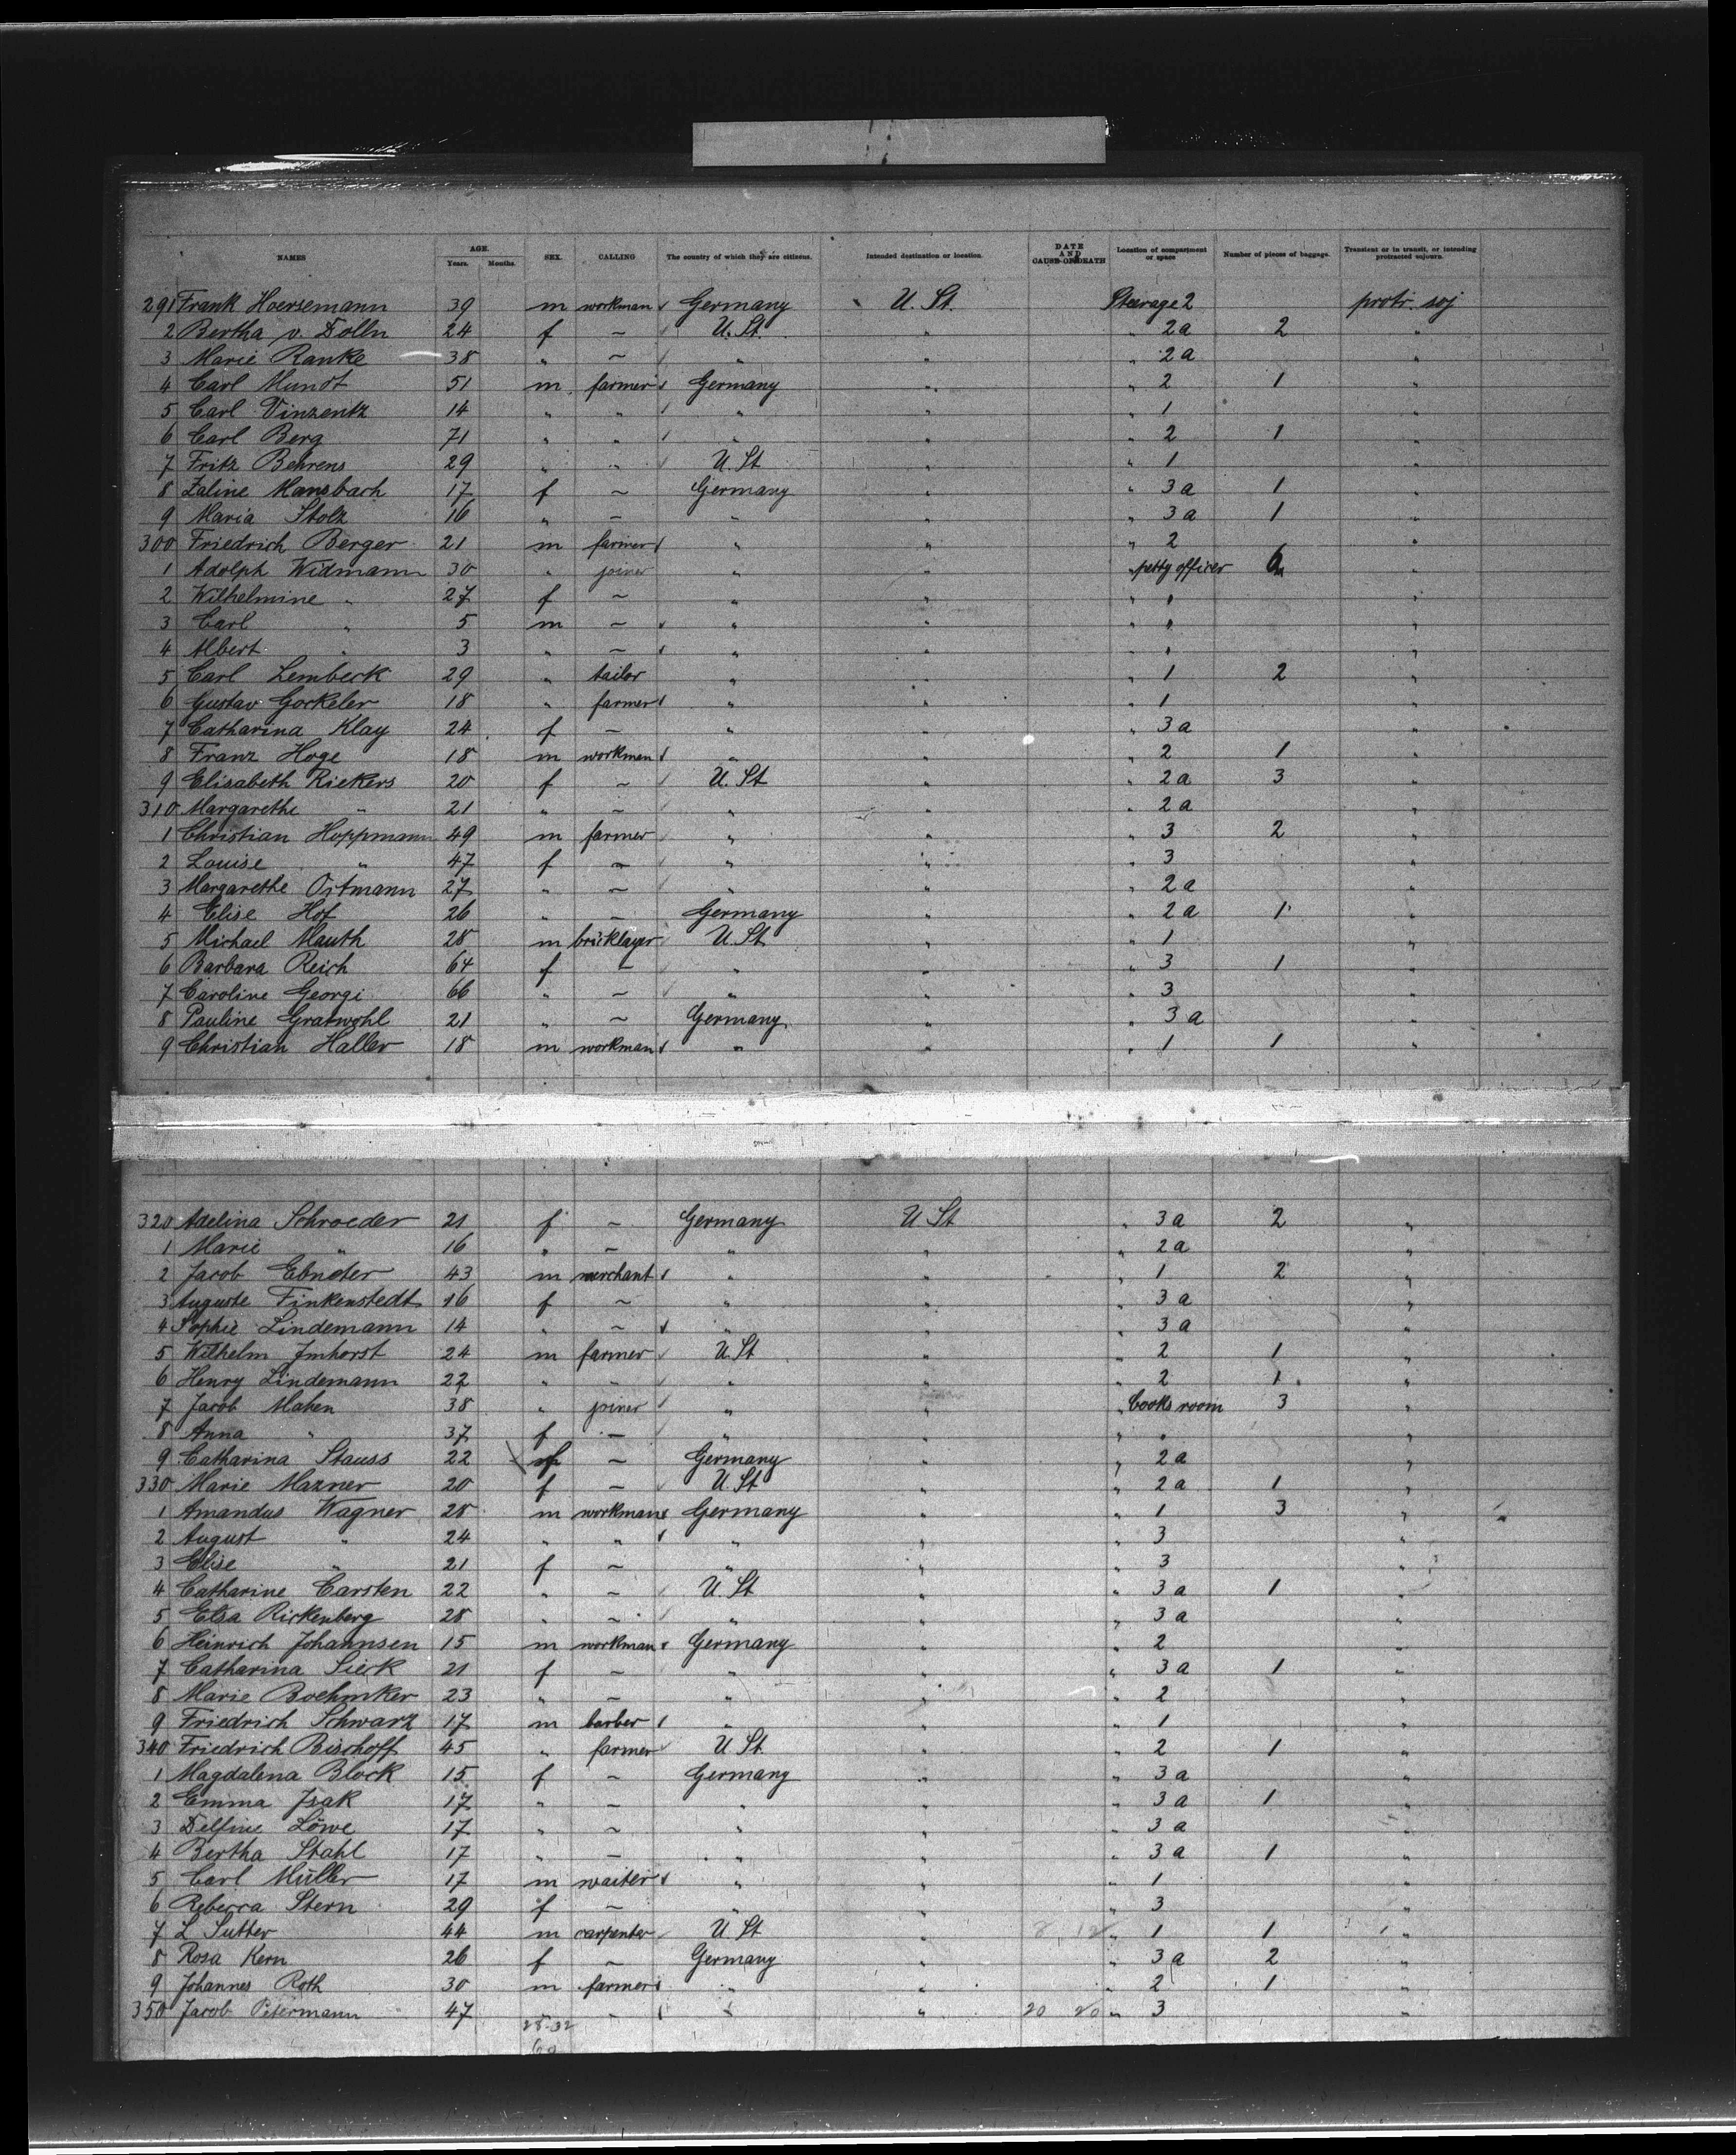 NAMES AGE. Years. Months. SEX. CALLING The country of which they are citizens. Intended destination or location. DATE AND CAUSE OF DEATH Location of compartment or space Number of pieces of baggage. Transient or in transit, or intending protracted sojourn.
291 Frank Hoersemann 39 m workman Germany U. St. Steerage 2 protr. soj
2 Bertha v. Dolln 24 f ~ U. St. " " 2a 2 "
3 Marie Ranke 38 " ~ " " " 2a "
4 Carl Mundt 51 m farmer Germany " " 2 1 "
5 Carl Vinzentz 14 " " " " " 1 "
6 Carl Berg 71 " " " " " 2 1 "
7 Fritz Behrens 29 " " U. St " " 1 "
8 Zaline Mansbach 17 f ~ Germany " " 3a 1 "
9 Maria Stolz 16 " ~ " " " 3a 1 "
300 Friedrich Berger 21 m farmer " " " 2 "
1 Adolph Widmann 30 " joiner " " " petty officer "
2 Wilhelmine " 27 f ~ " " " " "
3 Carl " 5 m ~ " " " " "
4 Albert " 3 " ~ " " " " "
5 Carl Lembeck 29 " tailor " " " 1 2 "
6 Gustav Gockeler 18 " farmer " " " 1 "
7 Catharina Klay 24 f ~ " " " 3a "
8 Franz Hoge 18 m workman " " " 2 1 "
9 Elisabeth Riekers 20 f ~ U. St " " 2a 3 "
310 Margarethe " 21 " ~ " " " 2a "
1 Christian Hoppmann 49 m farmer " " " 3 2 "
2 Louise " 47 f ~ " " " 3 "
3 Margarethe Ortmann 27 " ~ " " " 2a "
4 Elise Hof 26 " ~ Germany " " 2a 1 "
5 Michael Mauth 28 m bricklayer U. St " " 1 "
6 Barbara Reich 64 f ~ " " " 3 1 "
7 Caroline Georgi 66 " ~ " " " 3 "
8 Pauline Gratwohl 21 " ~ Germany " " 3a "
9 Christian Haller 18 m workman " " " 1 1 "
320 Adelina Schroeder 21 f ~ Germany U St " 3a 2 "
1 Marie " 16 " ~ " " " 2a "
2 Jacob Ebneter 43 m merchant " " " 1 2 "
3 Auguste Finkenstedt 16 f ~ " " " 3a "
4 Sophie Lindemann 14 " ~ " " " 3a "
5 Wilhelm Imhorst 24 m farmer U. St " " 2 1 "
6 Henry Lindemann 22 " " " " " 2 1 "
7 Jacob Maken 38 " joiner " " " Cooks room 3 "
8 Anna " 37 f ~ " " " " "
9 Catharina Stauss 22 f ~ Germany " " 2a "
330 Marie Mazner 20 f ~ U. St " " 2a 1 "
1 Amandus Wagner 28 m workman Germany " " 1 3 "
2 August " 24 " " " " " 3 "
3 Elise " 21 f ~ " " " 3 "
4 Catharine Carsten 22 " ~ U St " " 3a 1 "
5 Elsa Rickenberg 28 " ~ " " " 3a "
6 Heinrich Johannsen 15 m workman Germany " " 2 "
7 Catharina Sieck 21 f ~ " " " 3a 1 "
8 Marie Boehmker 23 " ~ " " " 2 "
9 Friedrich Schwarz 17 m barber " " " 1 "
340 Friedrich Bischoff 45 " farmer U St. " " 2 1 "
1 Magdalena Block 15 f ~ Germany " " 3a "
2 Emma Isak 17 " ~ " " " 3a 1 "
3 Delfine Löwe 17 " ~ " " " 3a "
4 Bertha Stahl 17 " ~ " " " 3a 1 "
5 Carl Müller 17 m waiter " " " 1 "
6 Rebecca Stern 29 f ~ " " " 3 "
7 L Sutter 44 m carpenter U St " " 1 1 "
8 Rosa Kern 26 f ~ Germany " " 3a 2 "
9 Johannes Roth 30 m farmer " " " 2 1 "
350 Jacob Petermann 47 " " " " 20 20 " 3 "
28-32